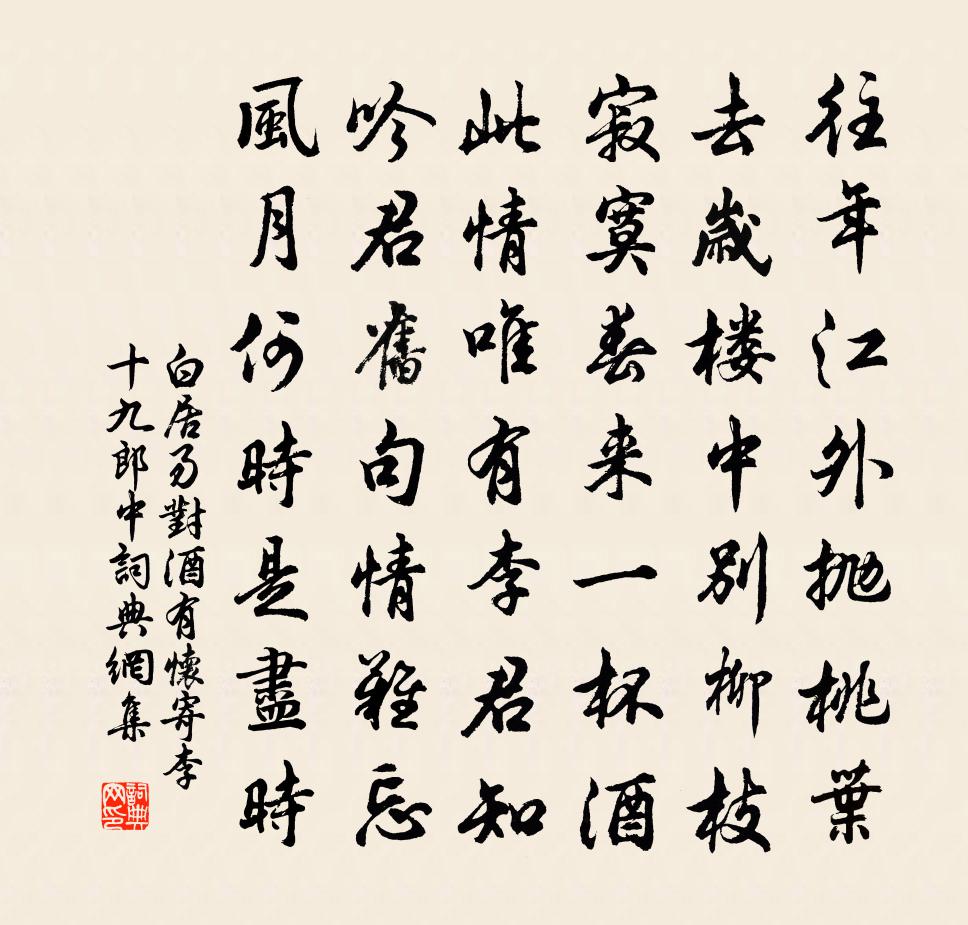 往年江外抛桃葉
去歲楼中別柳枝
寂寞春来一杯酒
此情唯有李君知
吟君舊句情難忘
風月何時是盡時
白居易對酒有懷寄李
十九郎中詞典網集
詞典網印